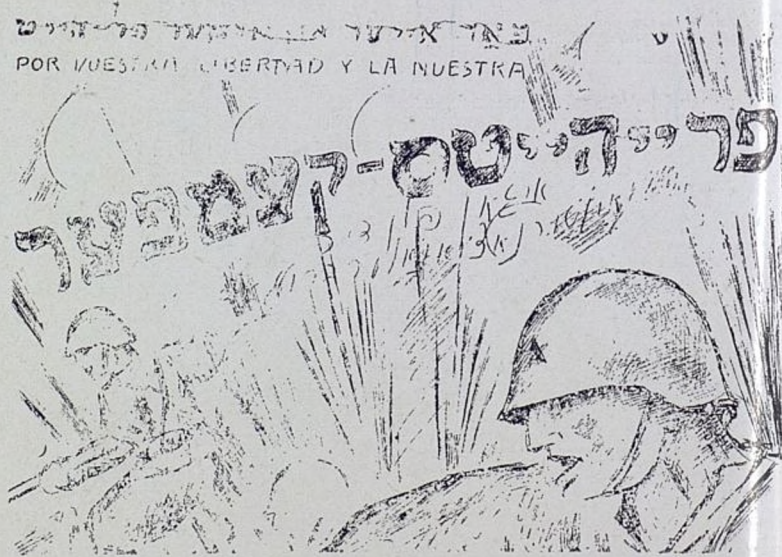 פאר אייער און אונזער פרייהייט
POR VUESTRA LIBERTAD Y LA NUESTRA
פרייהייטס-קעמפער